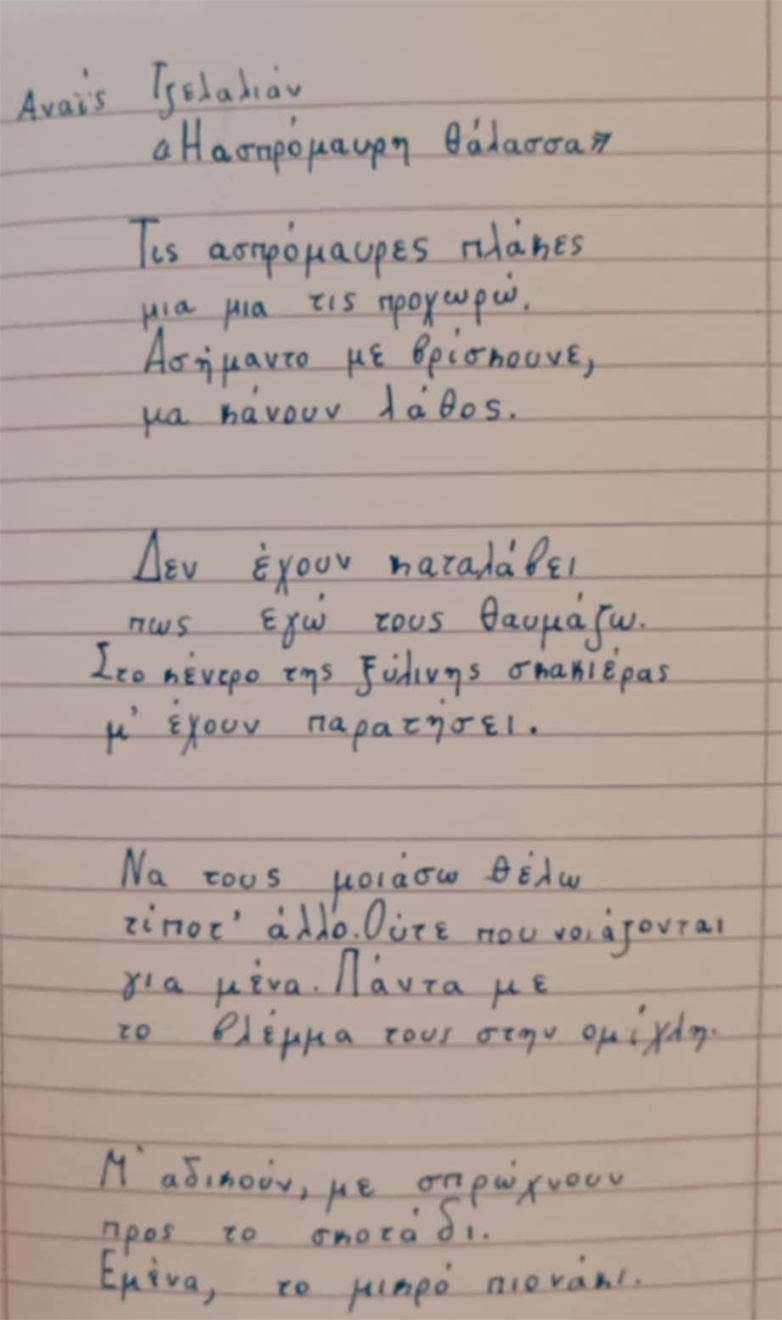 Αναΐς Τζελαλιάν
«Η ασπρόμαυρη θάλασσα»
Τις ασπρόμαυρες πλάκες
μια μια τις προχωρώ.
Ασήμαντο με βρίσκουνε,
μα κάνουν λάθος.
Δεν έχουν καταλάβει
πως εγώ τους θαυμάζω.
Στο κέντρο της ξύλινης σκακιέρας
μ' έχουν παρατήσει.
Να τους μοιάσω θέλω
τίποτ' άλλο. Ούτε που νοιάζονται
για μένα. Πάντα με
το βλέμμα τους στην ομίχλη.
Μ' αδικούν, με σπρώχνουν
προς το σκοτάδι.
Εμένα, το μικρό πιονάκι.